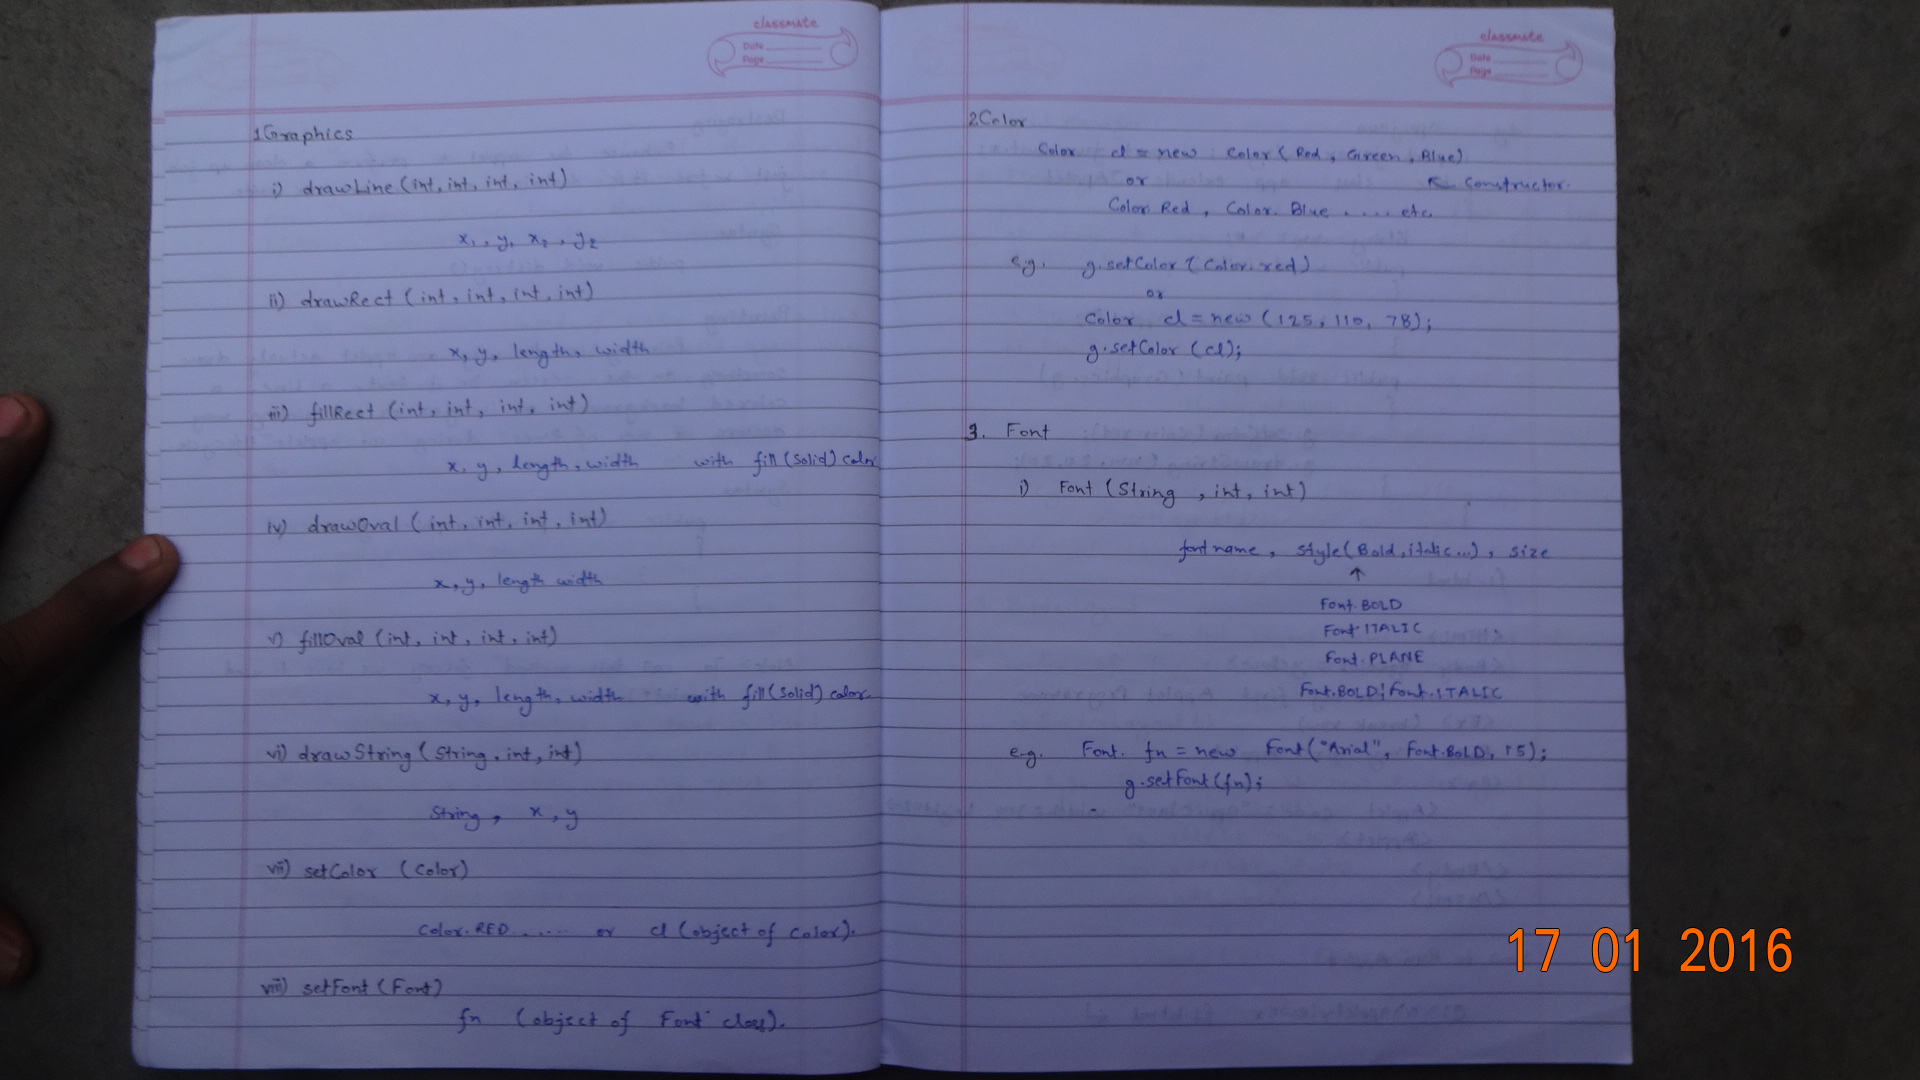 classmate
Date
Page
1 Graphics
i) drawLine (int, int, int, int)
x1, y, x2, y2
ii) drawRect (int, int, int, int)
x, y, length, width
iii) fillRect (int, int, int, int)
x, y, length, width with fill (solid) color
iv) drawOval (int, int, int, int)
x, y, length width
v) fillOval (int, int, int, int)
x, y, length, width with fill (solid) color.
vi) drawString (String, int, int)
String, x, y
vii) setColor (Color)
Color.RED ...... or cl (object of color).
viii) setFont (Font)
fn (object of Font class).
classmate
Date
Page
2 Color
Color cl = new Color (Red, Green, Blue)
or ↖ Constructor.
Color Red, Color. Blue ..... etc.
e.g. g.setColor (Color.red)
or
Color cl = new (125, 110, 78);
g.setColor (cl);
3. Font
i) Font (String , int, int)
font name, style (Bold, italic...), size
↑
Font.BOLD
Font.ITALIC
Font.PLANE
Font.BOLD|Font.ITALIC
e.g. Font. fn = new Font("Arial", Font.BOLD, 15);
g.setFont(fn);
17 01 2016